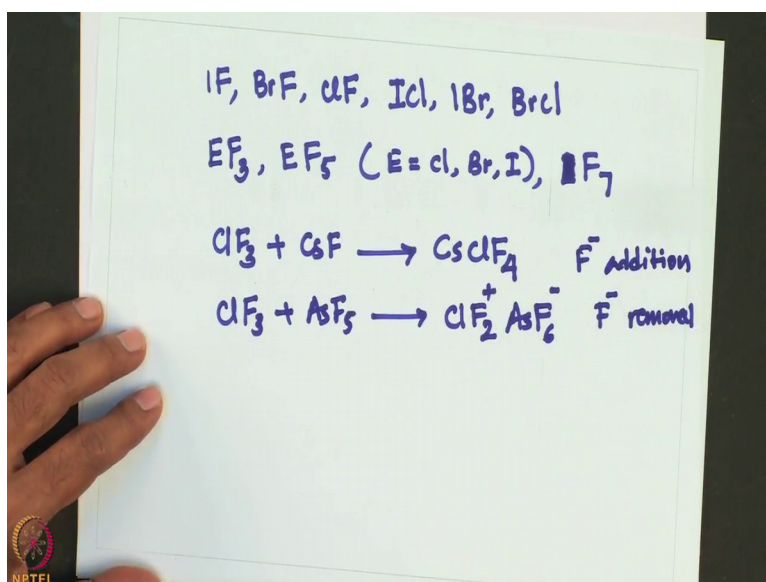 IF, BrF, ClF, ICl, IBr, BrCl
EF₃, EF₅ (E = Cl, Br, I), IF₇
ClF₃ + CsF ⟶ CsClF₄ F⁻ addition
ClF₃ + AsF₅ ⟶ ClF₂⁺ AsF₆⁻ F⁻ removal
NPTEL